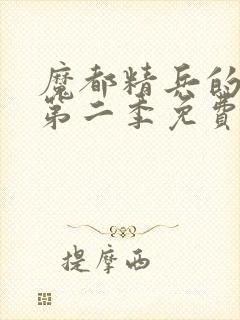 魔都精兵的
第二季免費
提摩西